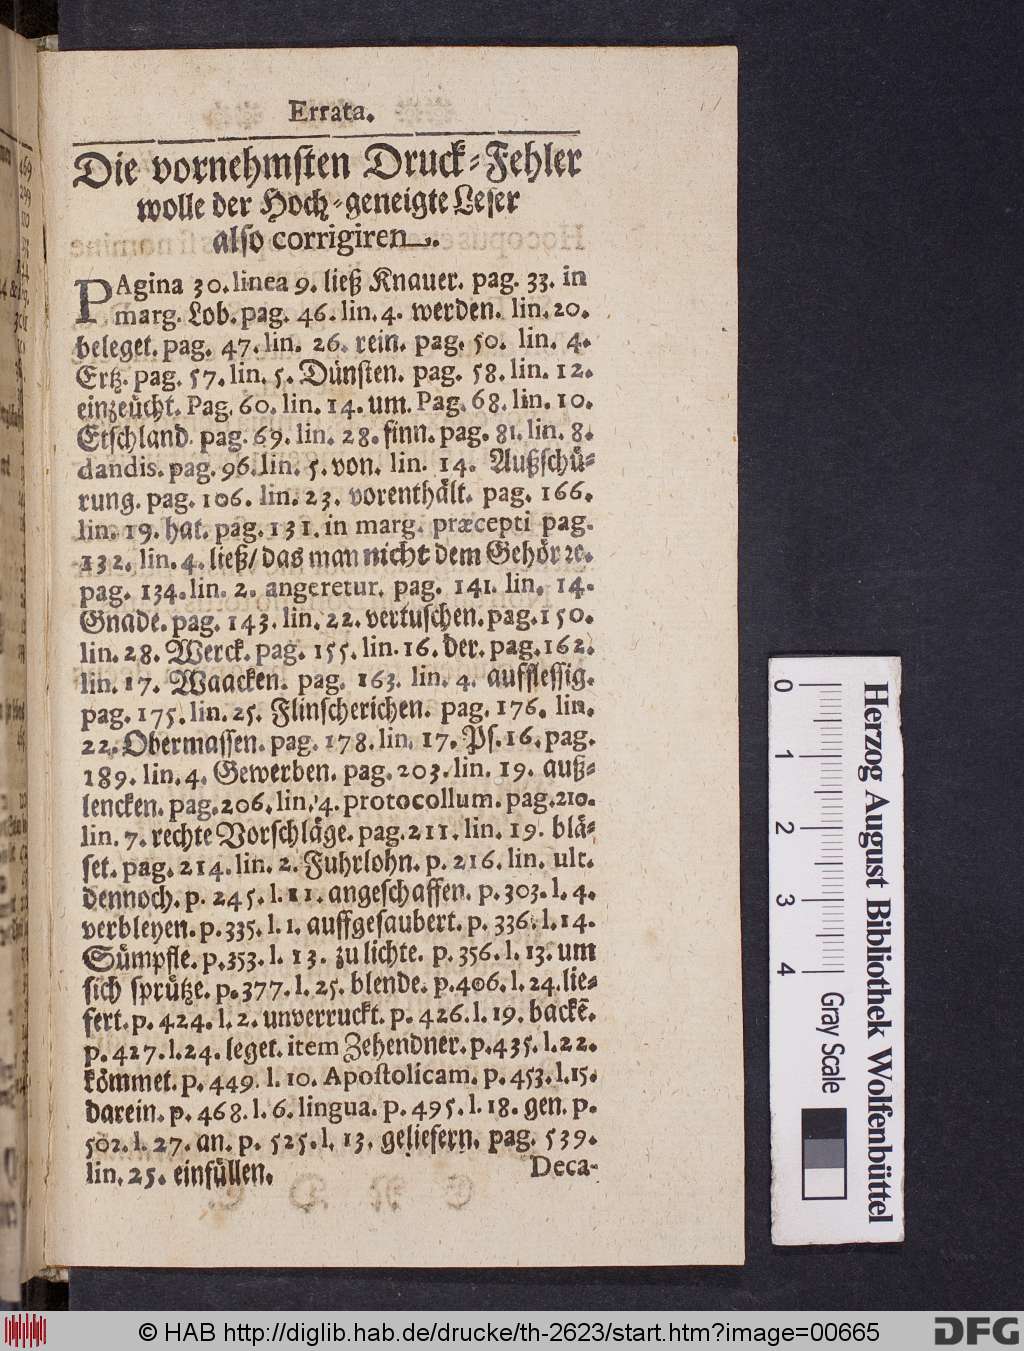 Errata.
Die vornehmsten Druck-Fehler
wolle der Hoch-geneigte Leser
also corrigiren.
PAgina 30. linea 9. ließ Knauer. pag. 33. in
marg. Lob. pag. 46. lin. 4. werden. lin. 20.
beleget. pag. 47. lin. 26. rein. pag. 50. lin. 4.
Ertz. pag. 57. lin. 5. Dünsten. pag. 58. lin. 12.
einzeücht. Pag. 60. lin. 14. um. Pag. 68. lin. 10.
Etschland. pag. 69. lin. 28. finn. pag. 81. lin. 8.
dandis. pag. 96. lin. 5. von. lin. 14. Außschü-
rung. pag. 106. lin. 23. vorenthält. pag. 166.
lin. 19. hat. pag. 131. in marg. præcepti pag.
132. lin. 4. ließ/ das man nicht dem Gehör ꝛc.
pag. 134. lin. 2. angeretur. pag. 141. lin. 14.
Gnade. pag. 143. lin. 22. vertuschen. pag. 150.
lin. 28. Werck. pag. 155. lin. 16. der. pag. 162.
lin. 17. Waacken. pag. 163. lin. 4. aufflessig.
pag. 175. lin. 25. Flinscherichen. pag. 176. lin.
22. Obermassen. pag. 178. lin. 17. Ps. 16. pag.
189. lin. 4. Gewerben. pag. 203. lin. 19. auß-
lencken. pag. 206. lin. 4. protocollum. pag. 210.
lin. 7. rechte Vorschläge. pag. 211. lin. 19. blä-
set. pag. 214. lin. 2. Fuhrlohn. p. 216. lin. ult.
dennoch. p. 245. l. 11. angeschaffen. p. 303. l. 4.
verbleyen. p. 335. l. 1. auffgesaubert. p. 336. l. 14.
Sümpfle. p. 353. l. 13. zu lichte. p. 356. l. 13. um
sich sprütze. p. 377. l. 25. blende. p. 406. l. 24. lie-
fert. p. 424. l. 2. unverruckt. p. 426. l. 19. backẽ.
p. 427. l. 24. leget. item Zehendner. p. 435. l. 22.
kömmet. p. 449. l. 10. Apostolicam. p. 453. l. 15.
darein. p. 468. l. 6. lingua. p. 495. l. 18. gen. p.
502. l. 27. an. p. 525. l. 13. geliefern. pag. 539.
lin. 25. einfüllen.
Deca-
0 1 2 3 4
Gray Scale
Herzog August Bibliothek Wolfenbüttel
© HAB http://diglib.hab.de/drucke/th-2623/start.htm?image=00665
DFG